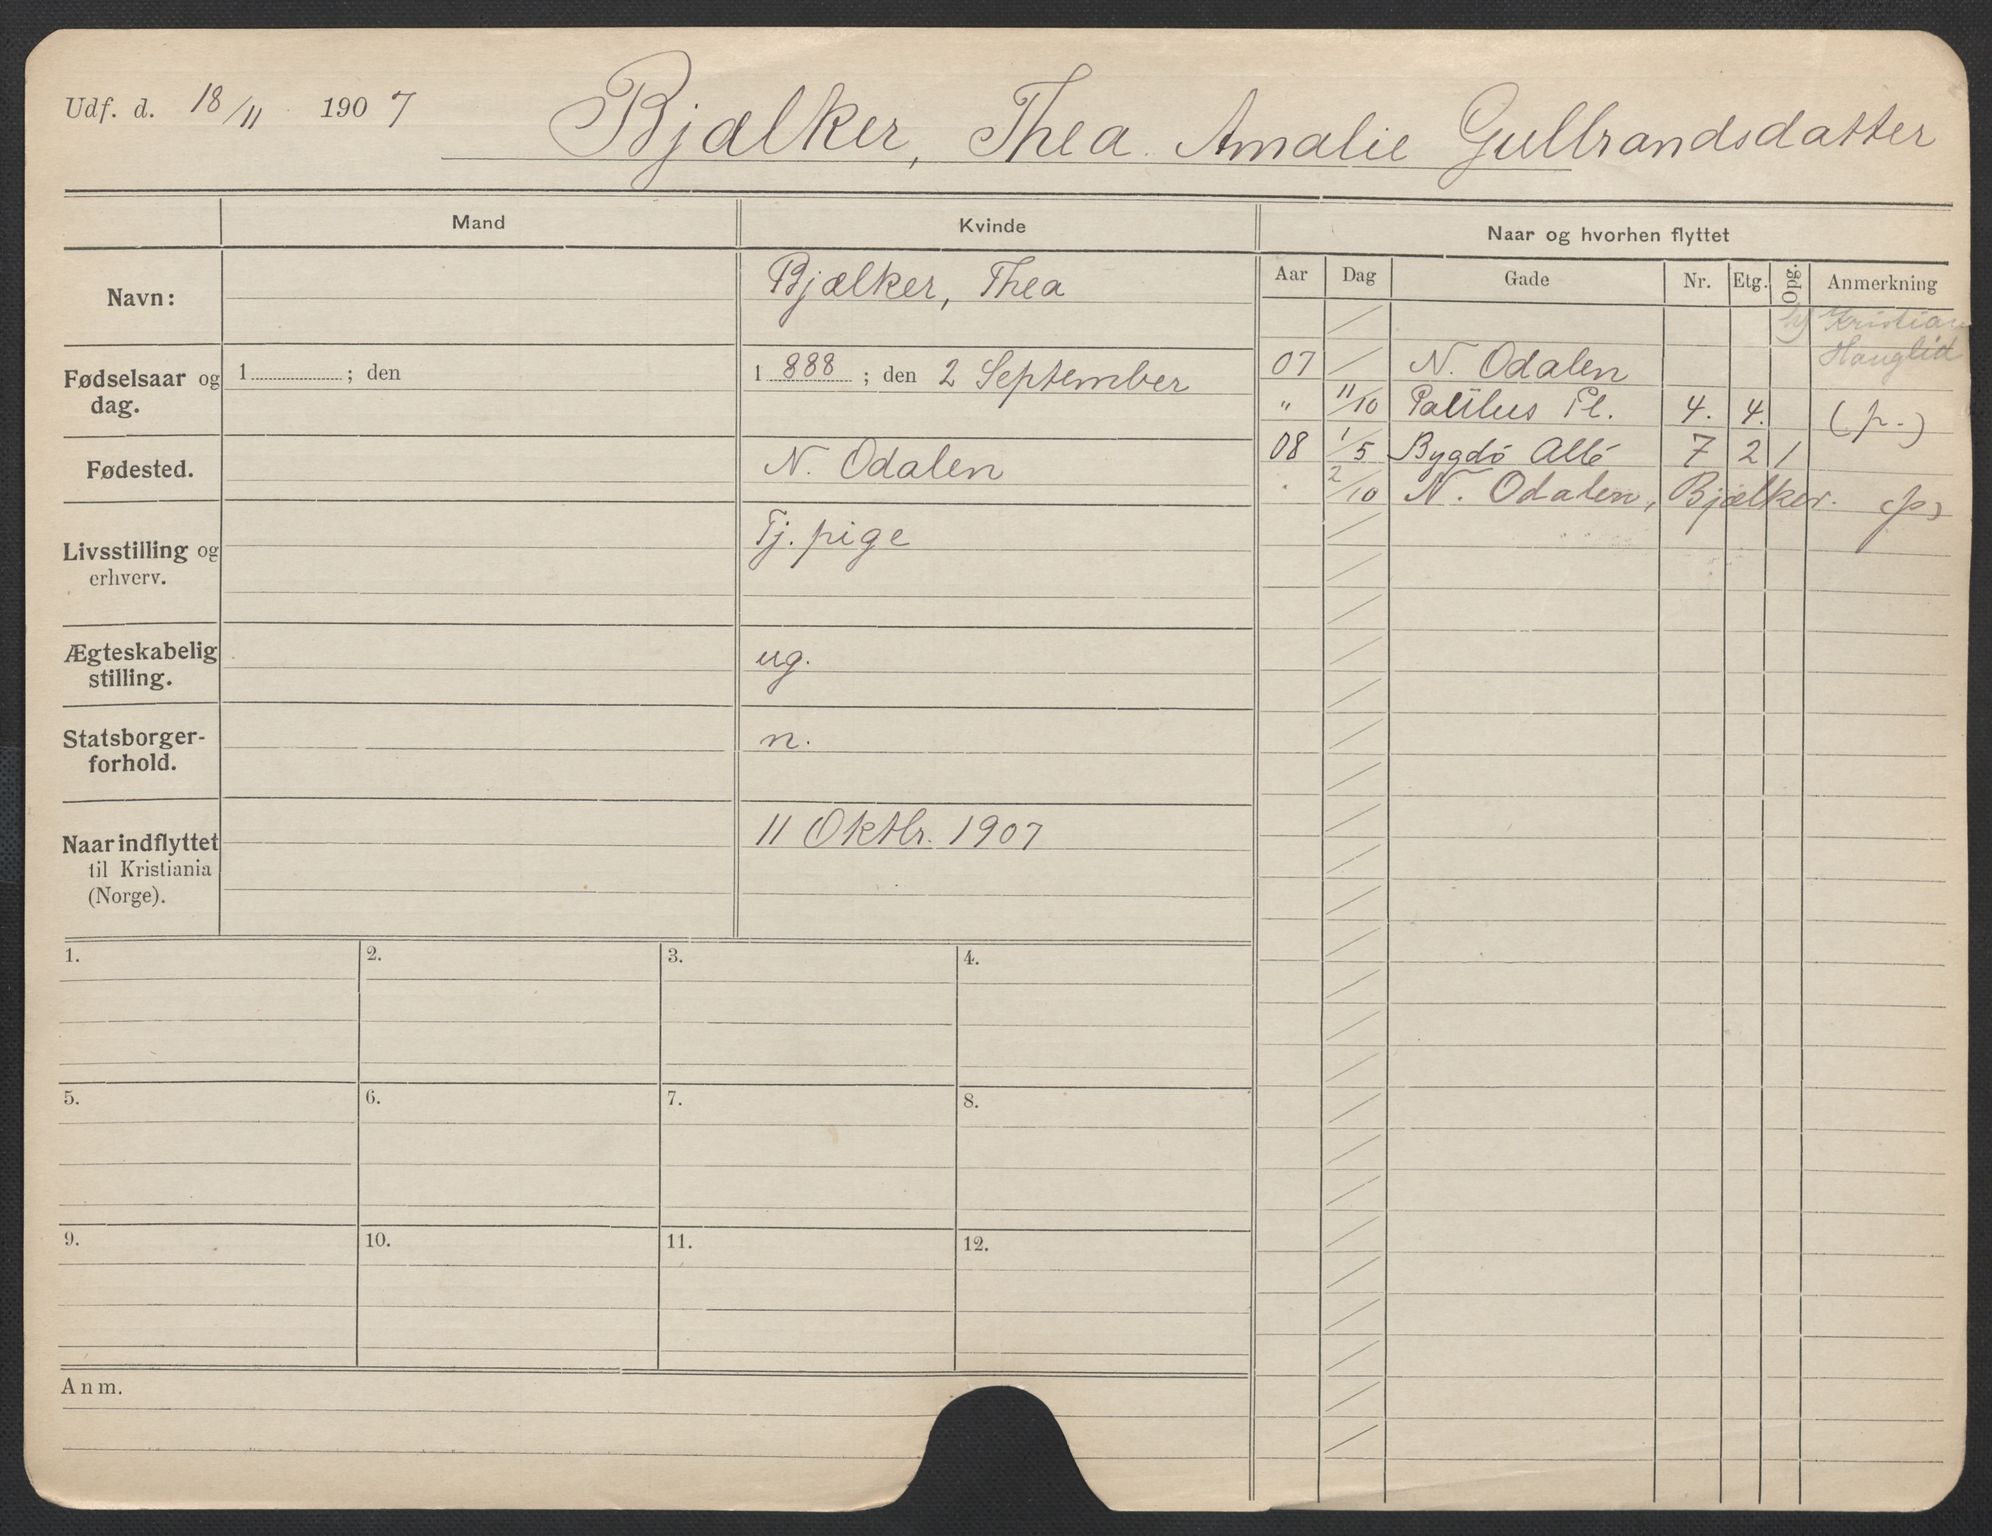 Udf. d. 18/11 1907 Bjælker, Thea Amalie Gulbrandsdatter
Mand Kvinde Naar og hvorhen flyttet
Aar Dag Gade Nr. Etg. Opg. Anmerkning
Navn: Bjælker, Thea
Fødselsaar og dag. 1 ; den 1888 ; den 2 September
Fødested. N. Odalen
Livsstilling og erhverv. Tj. pige
Ægteskabelig stilling. ug.
Statsborgerforhold. n.
Naar indflyttet til Kristiania (Norge). 11 Oktbr. 1907
Kristian
Hauglid
07 / N. Odalen
" 11/10 Paulus Pl. 4. 4. (p.)
08 1/5 Bygdö Allé 7 2 1
" 2/10 N. Odalen, Bjælker. (p)
1. 2. 3. 4.
5. 6. 7. 8.
9. 10. 11. 12.
Anm.